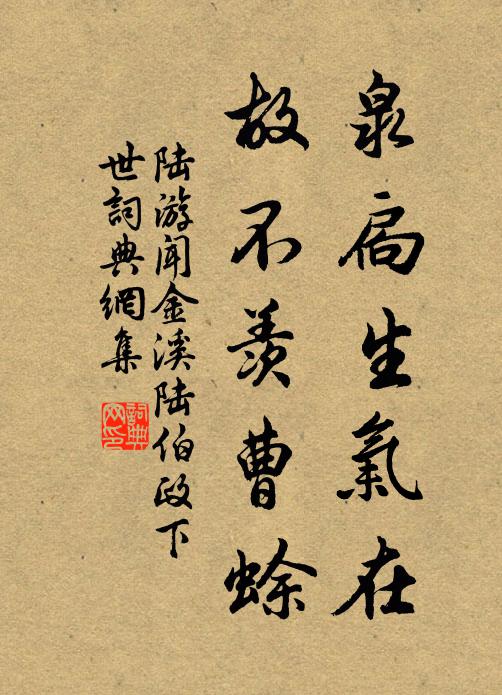 泉扃生氣在
故不羨曹蜍
陆游闻金溪陆伯政下
世詞典網集
詞典
网印